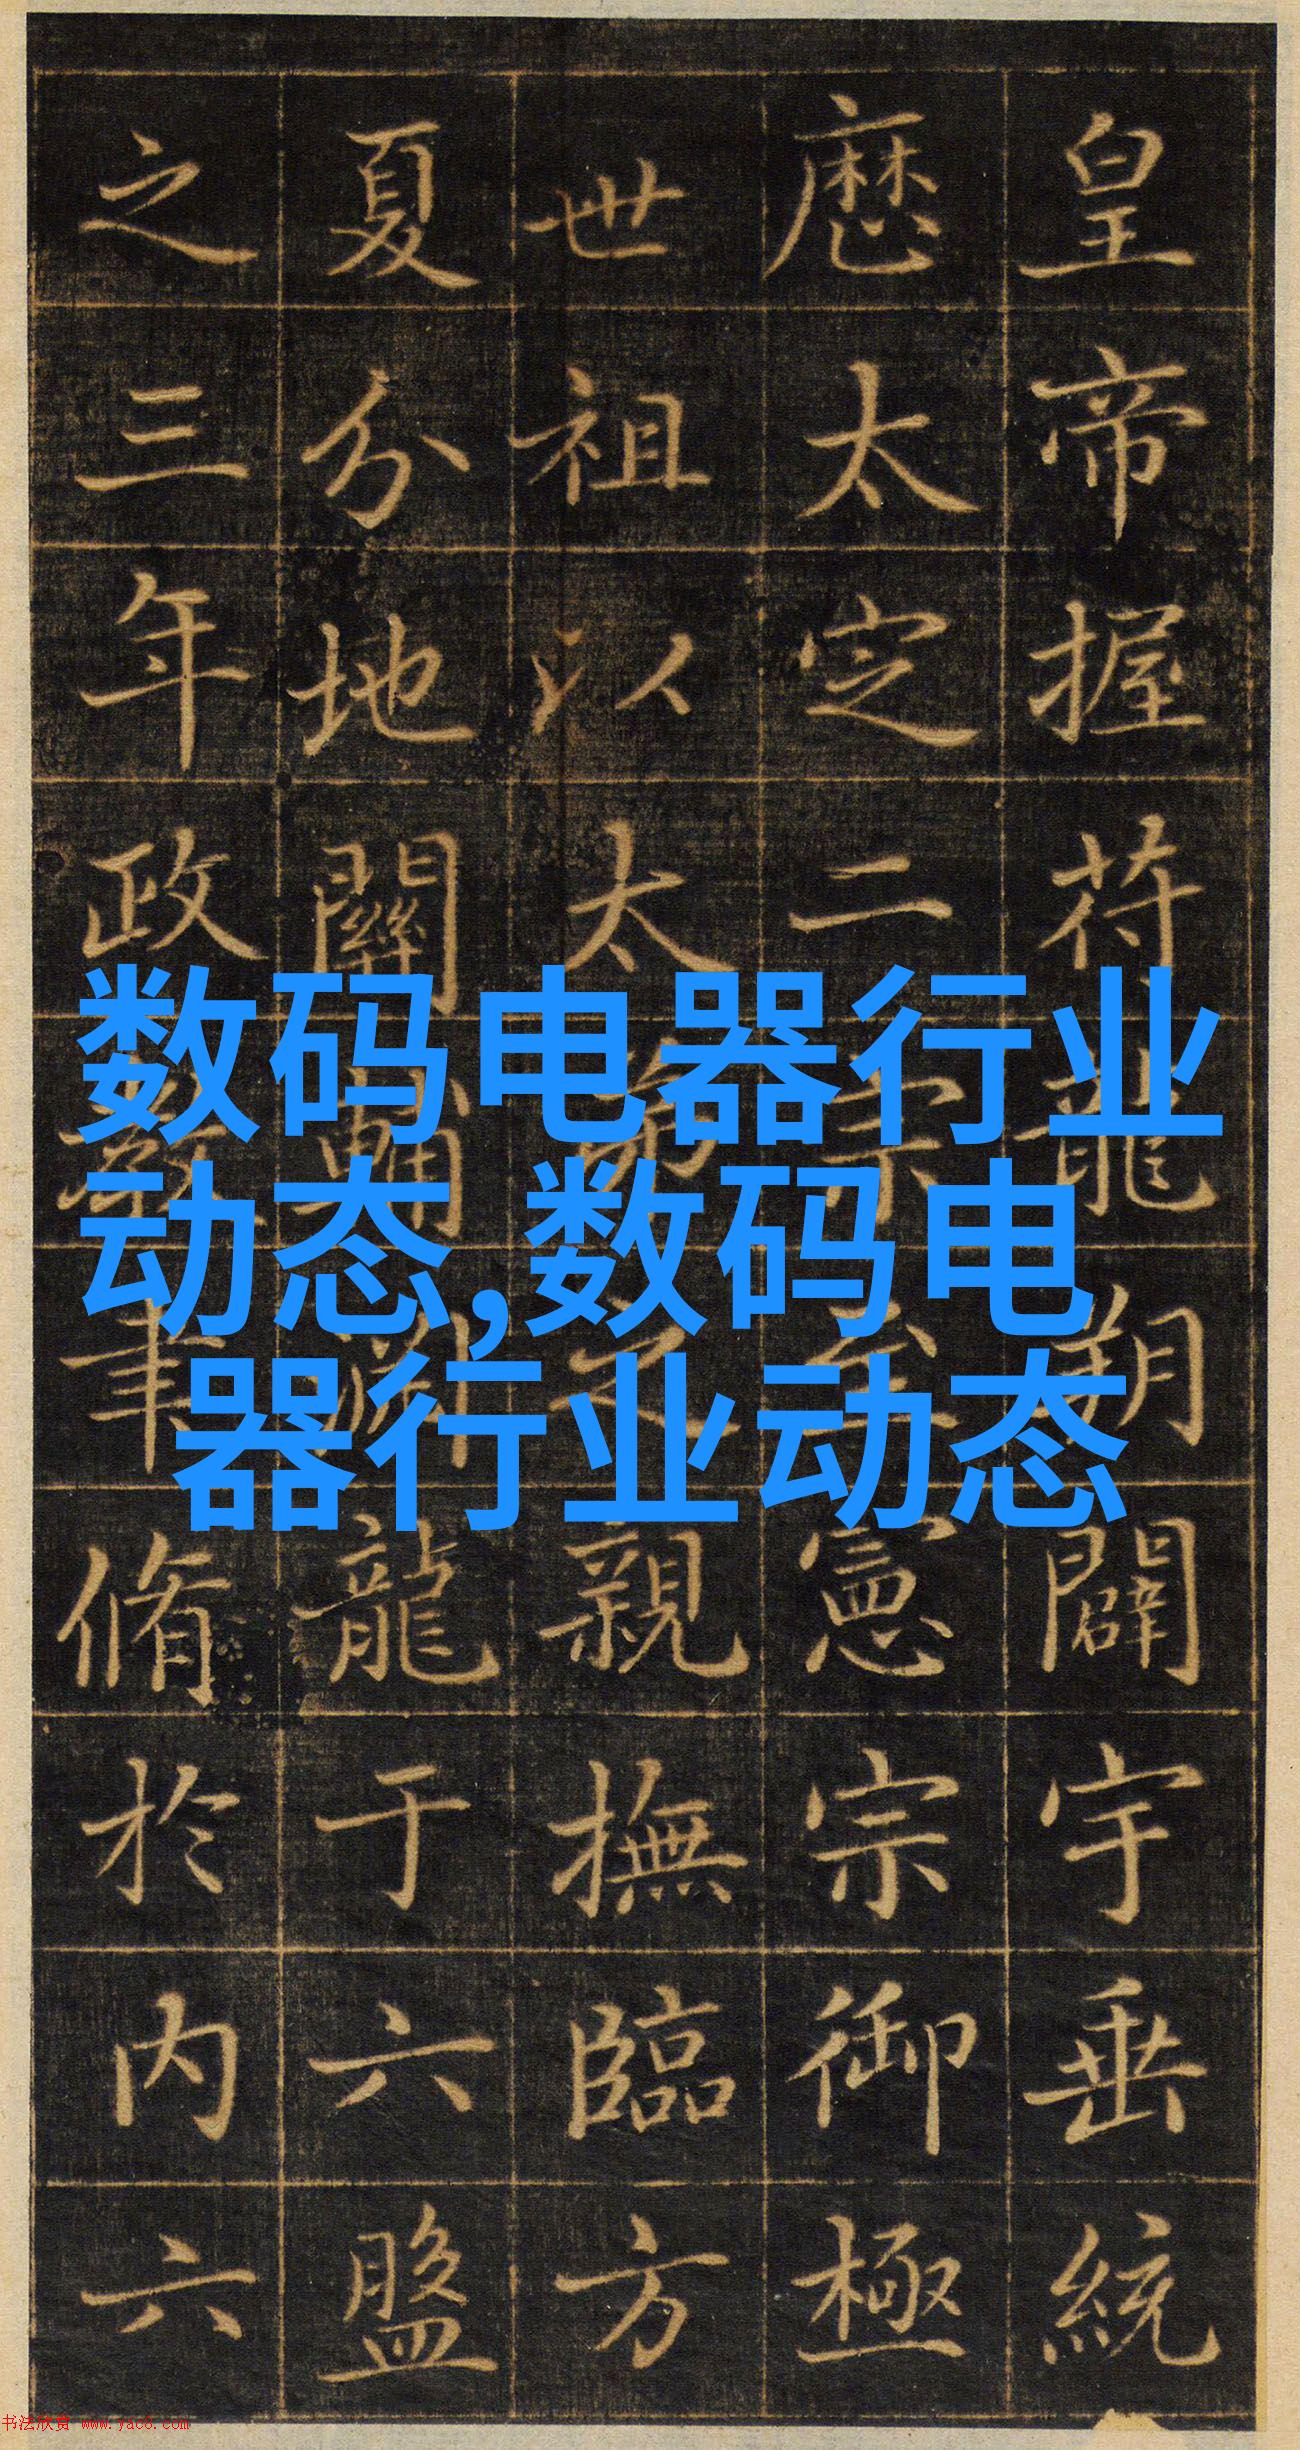 皇帝握符龍朔闢宇垂統
歷太定二宗至憲宗御極
世祖以太弟之親撫臨方
夏分地關輔淵龍于六盤
之三年政教聿脩於内六
数码电器行业
动态,数码电
器行业动态
书法欣赏 www.yac8.com